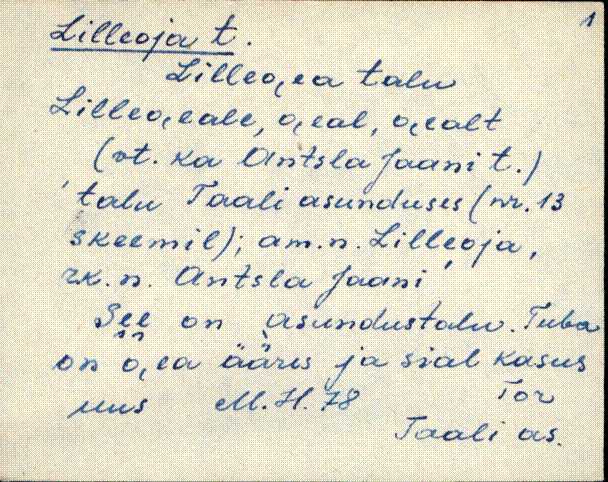 1
Lilleoja t.
Lilleo͔ea talu
Lilleo͔eale, o͔eal, o͔ealt
(vt. ka Antsla Jaani t.)
talu Taali asunduses (nr. 13
skeemil); am.n. Lilleoja,
rk. n. Antsla Jaani
See on asundustalu. Tuba
on o͔ea ääres ja sial kasus
uus M.H. 78 Tor
Taali as.